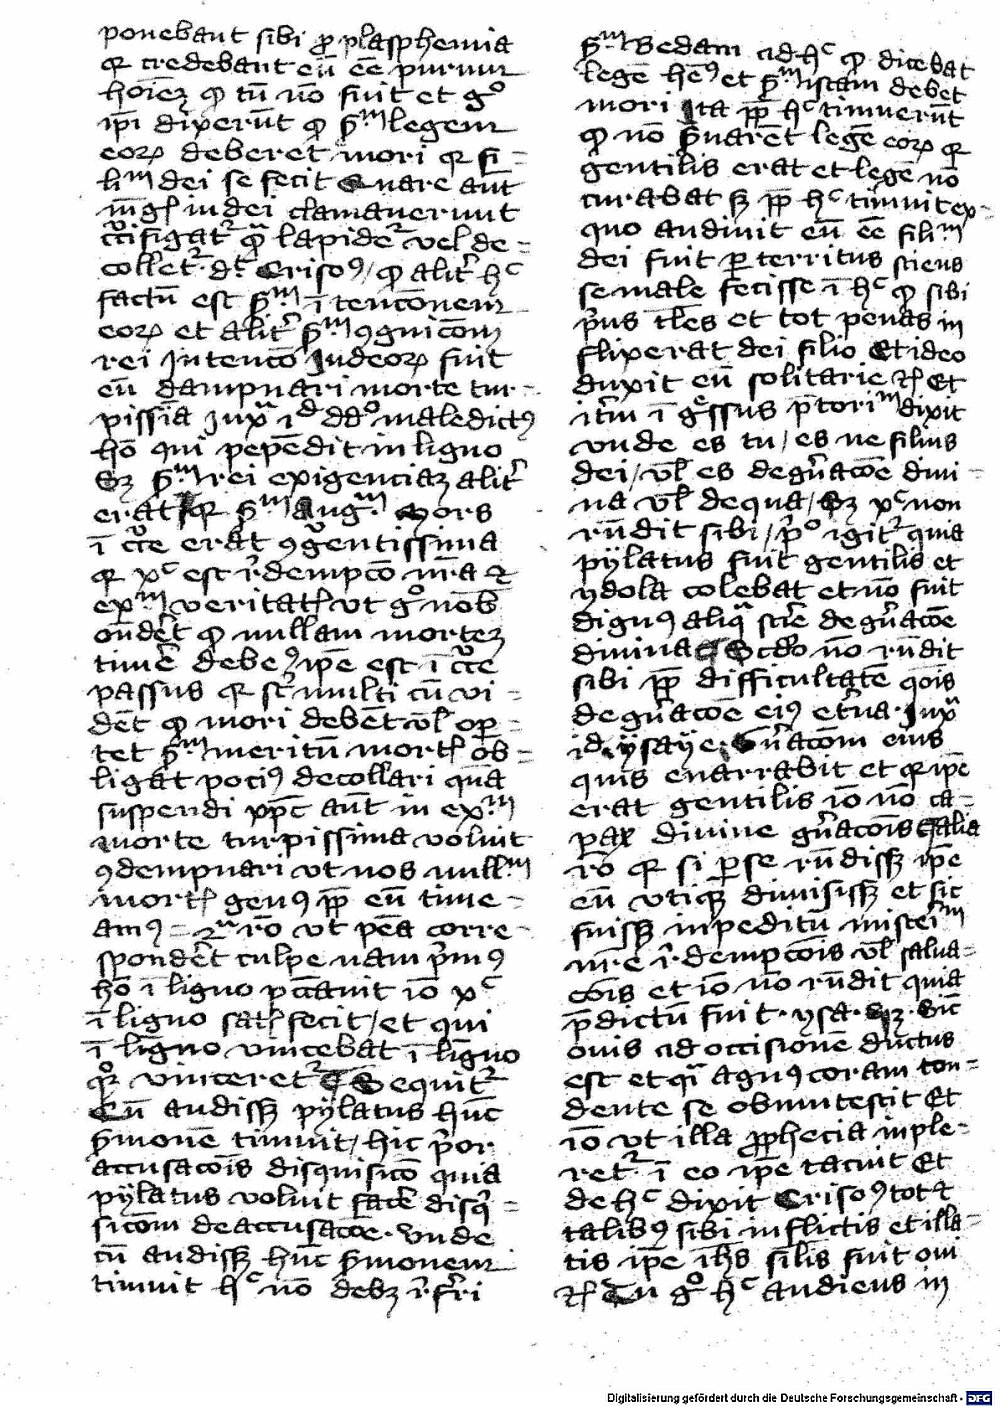 ponebant sibi ꝓ plasphemia
qꝛ credebant eū eē purum
hoīeꝫ ꝙ tn̄ nō fuit et gͦ
ip̄i dixer̄nt ꝙ ẜm legem
eoꝝ deberet mori qꝛ fi-
liᵐ dei se fecit Quare aūt
iudei clamauerunt
lapidet᷑ vel de-
collet᷑ dt̄ Crisoꝰ / ꝙ alit̄ hᶜ
factū est ẜm ītencōnem
eoꝝ et alit̄ ẜm ꝯgruicōm
rei Intencō Iudeoꝝ fuit
eū dampnari morte tur-
pissīa Juxᵃ id maledictꝰ
hō qui pependit in ligno
Sꝫ ẜm rei exigenciaꝫ alit̄
erat qꝛ ẜm Augᵐ Mors
ī crͨe erat ꝯgͬuentissima
qꝛ xᶜ est r̄dempcō nr̄a et
exᵐ veritatꝭ vt gͦ nob̄
ond̄et ꝙ nullam morteꝫ
timē debeꝰ ip̄e est ī crͨe
passus qꝛ multi cū vi-
dēt ꝙ mori debēt vl̄ opꝛ-
tet ẜm meritū mortꝭ ob-
ligāt pociꝰ decollari quā
suspendi xp̄c aūt in exᵐ
morte turpissima voluit
ꝯdempnari vt nos nullᵐ
mortꝭ genꝰ ꝓp̄ eū time-
amꝰ rō vt pēa corre-
spondēt culpe nam pͥmꝰ
hō ī ligno pcc̄auit iō xᶜ
ī ligno satꝭfecit / et qui
ī ligno vincebat ī ligno
qͦꝫ vinceret᷑ Sequit᷑
Cū audissꝫ pylatus hūc
ẜmonē timuit / hic pͦor
accusacōis disquisicō quia
pylatus voluit facē disqͥ-
sicōm de accusacōe. Vnde
cū audissꝫ hūc ẜmonem
timuit hᶜ nō debꝫ r̄fͬri
ẜm Bedam ad hᶜ ꝙ dicebāt
legē hēꝰ et ẜm istam debet
mori Ita ꝓp̄ hᶜ timuerūt
ꝙ nō ẜuarēt legē eoꝝ qꝛ
gentilis erat et legē nō
curabat sꝫ ꝓp̄ hᶜ timuit ex-
quo audiuit eū eē filiᵐ
dei fuit ꝑterritus sciens
se male fecisse ī hᶜ ꝙ sibi
pͥus tl̄es et tot penas in
flixerat dei filio Et ideo
duxit eū solitarie rꝭ Et
itm̄ īgͤssus p̄toriᵐ dixit
vnde es tu / es ne filius
dei / vl̄ es de gn̄acōe diui-
na vl̄ de qua / Sꝫ xᶜ non
rn̄dit sibi / pͦ igit᷑ quia
pylatus fuit gentilis et
ydola colebat et nō fuit
dignꝰ aliqᵃ scīe de gn̄acōe
diuina Scdo nō rn̄dit
sibi ꝓp̄ difficultatē qōis
de gn̄acōe eiꝰ et̄na. Juxᵃ
id ysaye. Gn̄acōm eius
quis enarrabit et qꝛ ip̄e
erat gentilis iō nō ca-
pax diuine gn̄acōis Talia
rō qꝛ si ꝑ se rn̄dissꝫ ip̄e
eū vtiqꝫ dimisissꝫ et sic
fuissꝫ inpeditū misteriᵐ
nr̄e r̄dempcōis vl̄ salua-
cōis et iō nō rn̄dit quia
p̄dictū fuit. ysa. Sic̄
ouis ad occisionē ductus
est et qͣ agnꝰ coram ton-
dente se obmutescit Et
iō vt illa ꝓphecia inple-
ret᷑ ī eo ip̄e tacuit Et
de hᶜ dixit Crisoꝰ tot ⁊
talibꝰ sibi inflictis et illa-
tis ip̄e ih̄s sīlis fuit oui
rꝭ Tu gͦ hᶜ audiens in
Digitalisierung gefördert durch die Deutsche Forschungsgemeinschaft - DFG